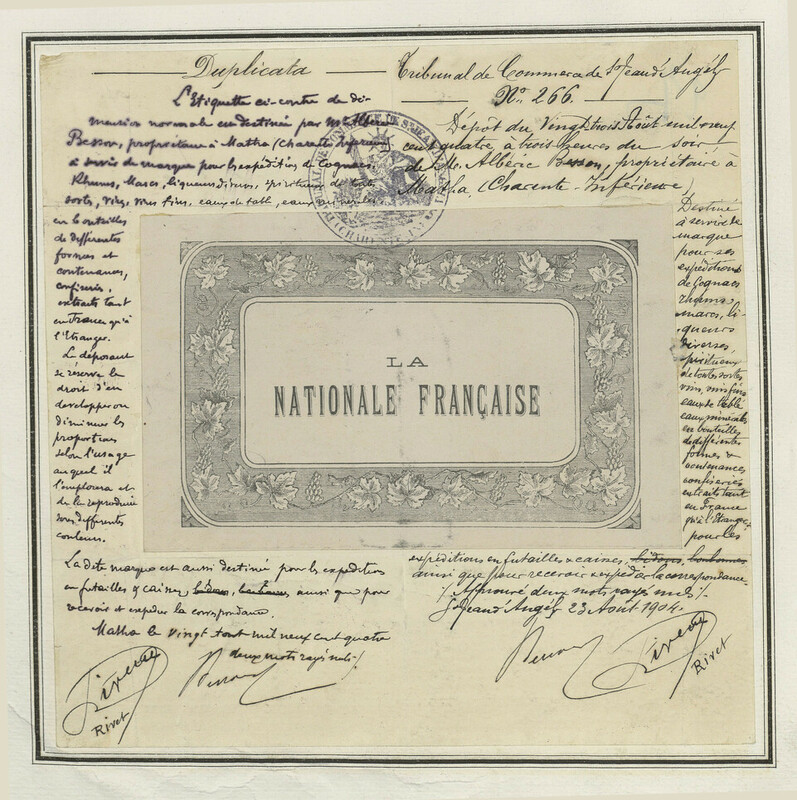 Duplicata
L'Etiquette ci-contre de di-
mension normale est destinée par Mr
Besson, propriétaire à Matha (Charente Inferieure)
à servir de marque pour les expéditions de Cognacs,
Rhums, Marcs, liqueurs diverses, spiritueux de toutes
sortes, vins, vins fins, eaux de table, eaux minerales
en bouteilles
de differentes
formes et
contenances,
confiserie,
extraits tant
en France qu'à
l'Etranger.
Le déposant
se réserve le
droit d'en
developper ou
diminuer les
proportions
selon l'usage
auquel il
l'emploiera et
de la reproduire
sous differentes
couleurs.
La dite marque est aussi destinée pour les expeditions
en futailles & caisses, bidons, bonbonnes, ainsi que pour
recevoir et expedier la correspondance.
Matha le vingt aout mil neuf cent quatre
deux mots rayés nuls
Rivet
Tribunal de Commerce de St Jean d'Angély
No. 266.
Dépôt du Vingt trois Août mil neuf
cent quatre, à trois heures du soir,
de M. Albéric Besson, propriétaire à
Matha, (Charente-Inférieure),
Destiné
à servir de
marque
pour ses
expéditions
de Cognacs
rhums
marcs, li-
queurs
diverses,
spiritueux
de toutes sortes
vins, vins fins
eaux de table
eaux minérales
en bouteilles
de différentes
formes &
contenances
confiseries
extraits tant
en France
qu'à l'Etranger,
pour les
expéditions en futailles & caisses, bidons, bonbonnes
ainsi que pour recevoir & expédier la correspondance.
/ Approuvé deux mots rayés nuls /.
St Jean d'Angély 23 Août 1904.
Rivet
LA
NATIONALE FRANÇAISE